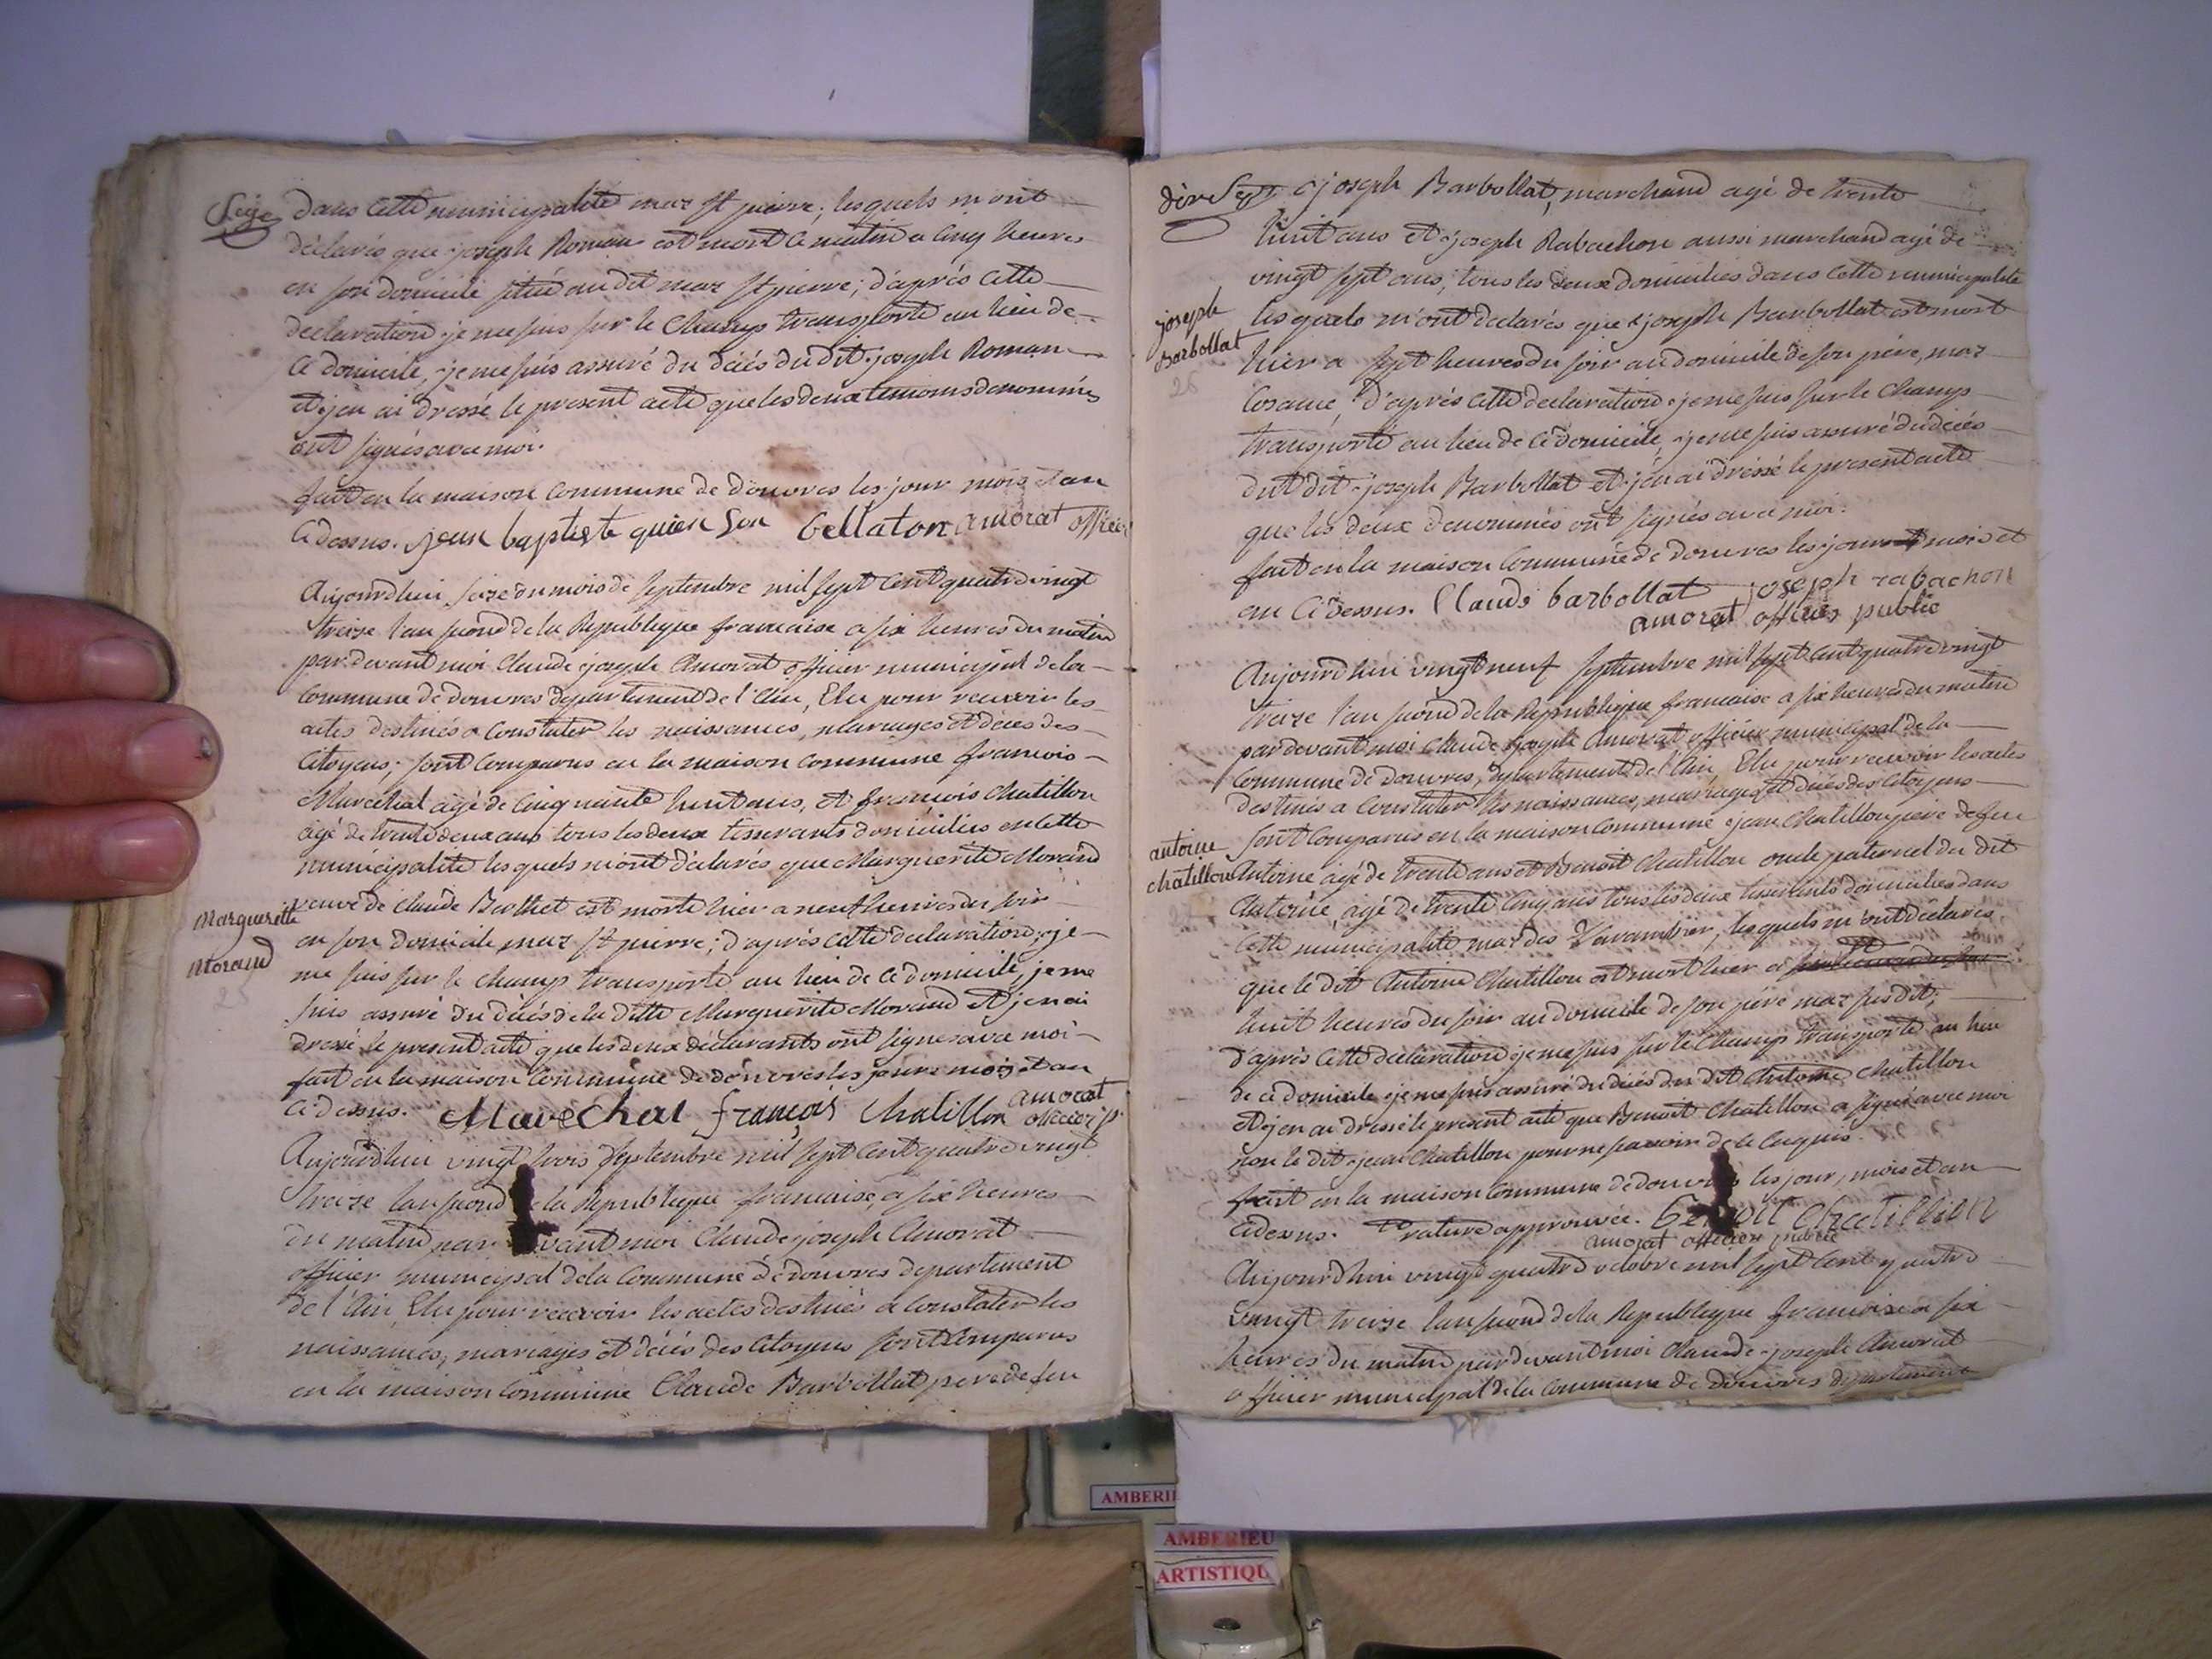 Seize
dans cette municipalité maz st pierre; lesquels m'ont
déclarés que joseph Roman est mort ce matin a cinq heures
en son domicile situé au dit maz st pierre; d'après cette
declaration je me suis sur le champ transporté au lieu de
ce domicile, je me suis assuré du décés du dit joseph Roman
et j'en ai dressé le present acte que les deux temoins denommés
ont signés avec moi.
fait en la maison commune de douvres les jour mois et an
ci dessus. jean baptiste quinson bellaton amorat officier
Aujourd'hui seize du mois de septembre mil sept cent quatre vingt
treize l'an second de la Republique francaise a six heures du matin
par devant moi Claude joseph Amorat officier municipal de la
commune de douvres departement de l'Ain, Elu pour recevoir les
actes destinés a constater les naissances, mariages et décès des
Citoyens; sont comparus en la maison commune francois
Marechal agé de cinquante huit ans, et francois Chatillon
agé de trente deux ans tous les deux tisserants domiciliés en cette
municipalité lesquels m'ont déclarés que Marguerite Morand
veuve de Claude Berthet est morte hier a neuf heures du soir
Marguerite
Morand
25
en son domicile maz st pierre; d'après cette declaration, je
me suis sur le champ transporté au lieu de ce domicile, je me
suis assuré du décés de la ditte Marguerite Morand et j'en ai
dressé le present acte que les deux déclarants ont signés avec moi
fait en la maison commune de douvres les jour mois et an
ci dessus. Marechal françois Chatillon amorat
officier p.
Aujourd'hui vingt trois septembre mil sept cent quatre vingt
treize l'an second de la Republique francaise, a six heures
du matin par devant moi Claude joseph Amorat
officier municipal de la commune de douvres departement
de l'Ain, Elu pour recevoir les actes destinés a constater les
naissances, mariages et décés des Citoyens sont comparus
en la maison commune Claude Barbollat pere de feu
dix Sept
joseph Barbollat, marchand agé de trente
huit ans et joseph Rabachon aussi marchand agé de
vingt sept ans, tous les deux domiciliés dans cette municipalité
joseph
Barbollat
26
lesquels m'ont declarés que joseph Barbollat est mort
hier a sept heures du soir au domicile de son père, maz
d'après cette declaration je me suis sur le champ
transporté au lieu de ce domicile, je me suis assuré du décés
du dit joseph Barbollat et j'en ai dressé le present acte
que les deux denommés ont signés avec moi.
fait en la maison commune de douvres les jour mois et
an ci dessus. Claude barbollat joseph rabachon
amorat officier public
Aujourd'hui vingt neuf septembre mil sept cent quatre vingt
treize l'an second de la Republique francaise a six heures du matin
par devant moi Claude joseph Amorat officier municipal de la
commune de douvres, departement de l'Ain, Elu pour recevoir les actes
destinés a constater les naissances, mariages et décés des Citoyens
sont comparus en la maison commune jean Chatillon pere de feu
antoine
chatillon
Antoine agé de trente ans et Benoit Chatillon oncle paternel du dit
Antoine, agé de trente cinq ans tous les deux tisserants domiciliés dans
cette municipalité maz des Varambier, lesquels m'ont déclarés
que le dit Antoine Chatillon est mort hier a
huit heures du soir au domicile de son père maz sus dit;
d'après cette declaration je me suis sur le champ transporté au lieu
de ce domicile je me suis assuré du décés du dit Antoine Chatillon
et j'en ai dressé le present acte que Benoit Chatillon a signé avec moi
non le dit jean Chatillon pour ne savoir de ce enquis.
fait en la maison commune de douvres les jour, mois et an
ci dessus. rature approuvée. benoit chatillion
amorat officier public
Aujourd'hui vingt quatre octobre mil sept cent quatre
vingt treize l'an second de la Republique francoise a six
heures du matin par devant moi Claude joseph Amorat
officier municipal de la commune de douvres departement
AMBERIE
AMBERIEU
ARTISTIQU